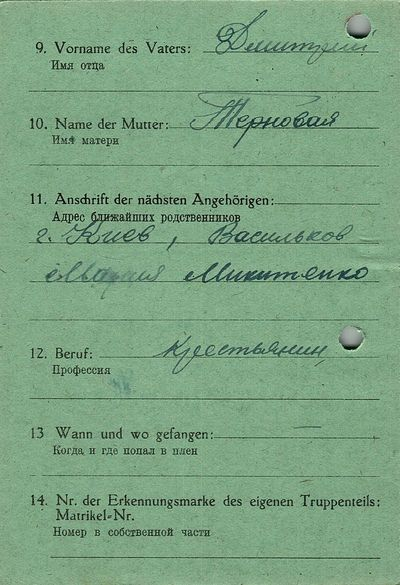 9. Vorname des Vaters: Дмитрий
Имя отца
10. Name der Mutter: Терновая
Имя матери
11. Anschrift der nächsten Angehörigen:
Адрес ближайших родственников
г. Киев, Васильков
Мария Микитенко
12. Beruf: крестьянин
Профессия
13 Wann und wo gefangen: —
Когда и где попал в плен
14. Nr. der Erkennungsmarke des eigenen Truppenteils:
Matrikel-Nr.
Номер в собственной части